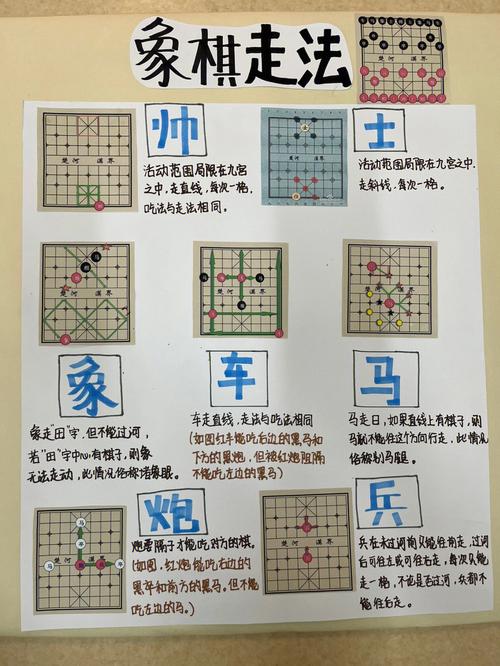 象棋走法
帅
活动范围局限在九宫
之中,走直线,每次一格,
吃法与走法相同。
士
活动范围局限在九宫之中,
走斜线,每次一格。
楚河 漢界
楚河 漢界
楚河 漢界
楚河 漢界
象
象走"田"字,但不能过河,
若"田"字中心有棋子,则象
无法走动,此情况俗称堵象眼。
车
车走直线,走法与吃法相同
(如图红车能吃右边的黑马和
下方的黑炮,但被红炮阻隔
不能吃左边的黑马)
马
马走日,如果直线上有棋子,则
马就不能往这个方向行走,此情况
俗称别马腿。
楚河 漢界
炮
炮要隔子才能吃对方的棋。
(如图,红炮能吃右边的
黑卒和前方的黑马。但不能
吃左边的马。)
兵
兵在未过河前只能往前走,过河
后可往左或可往右走,每次只能
走一格,不论是否过河,兵都不
能往后走。